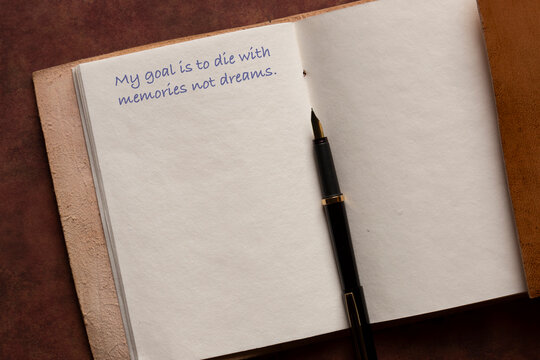 My goal is to die with
memories not dreams.